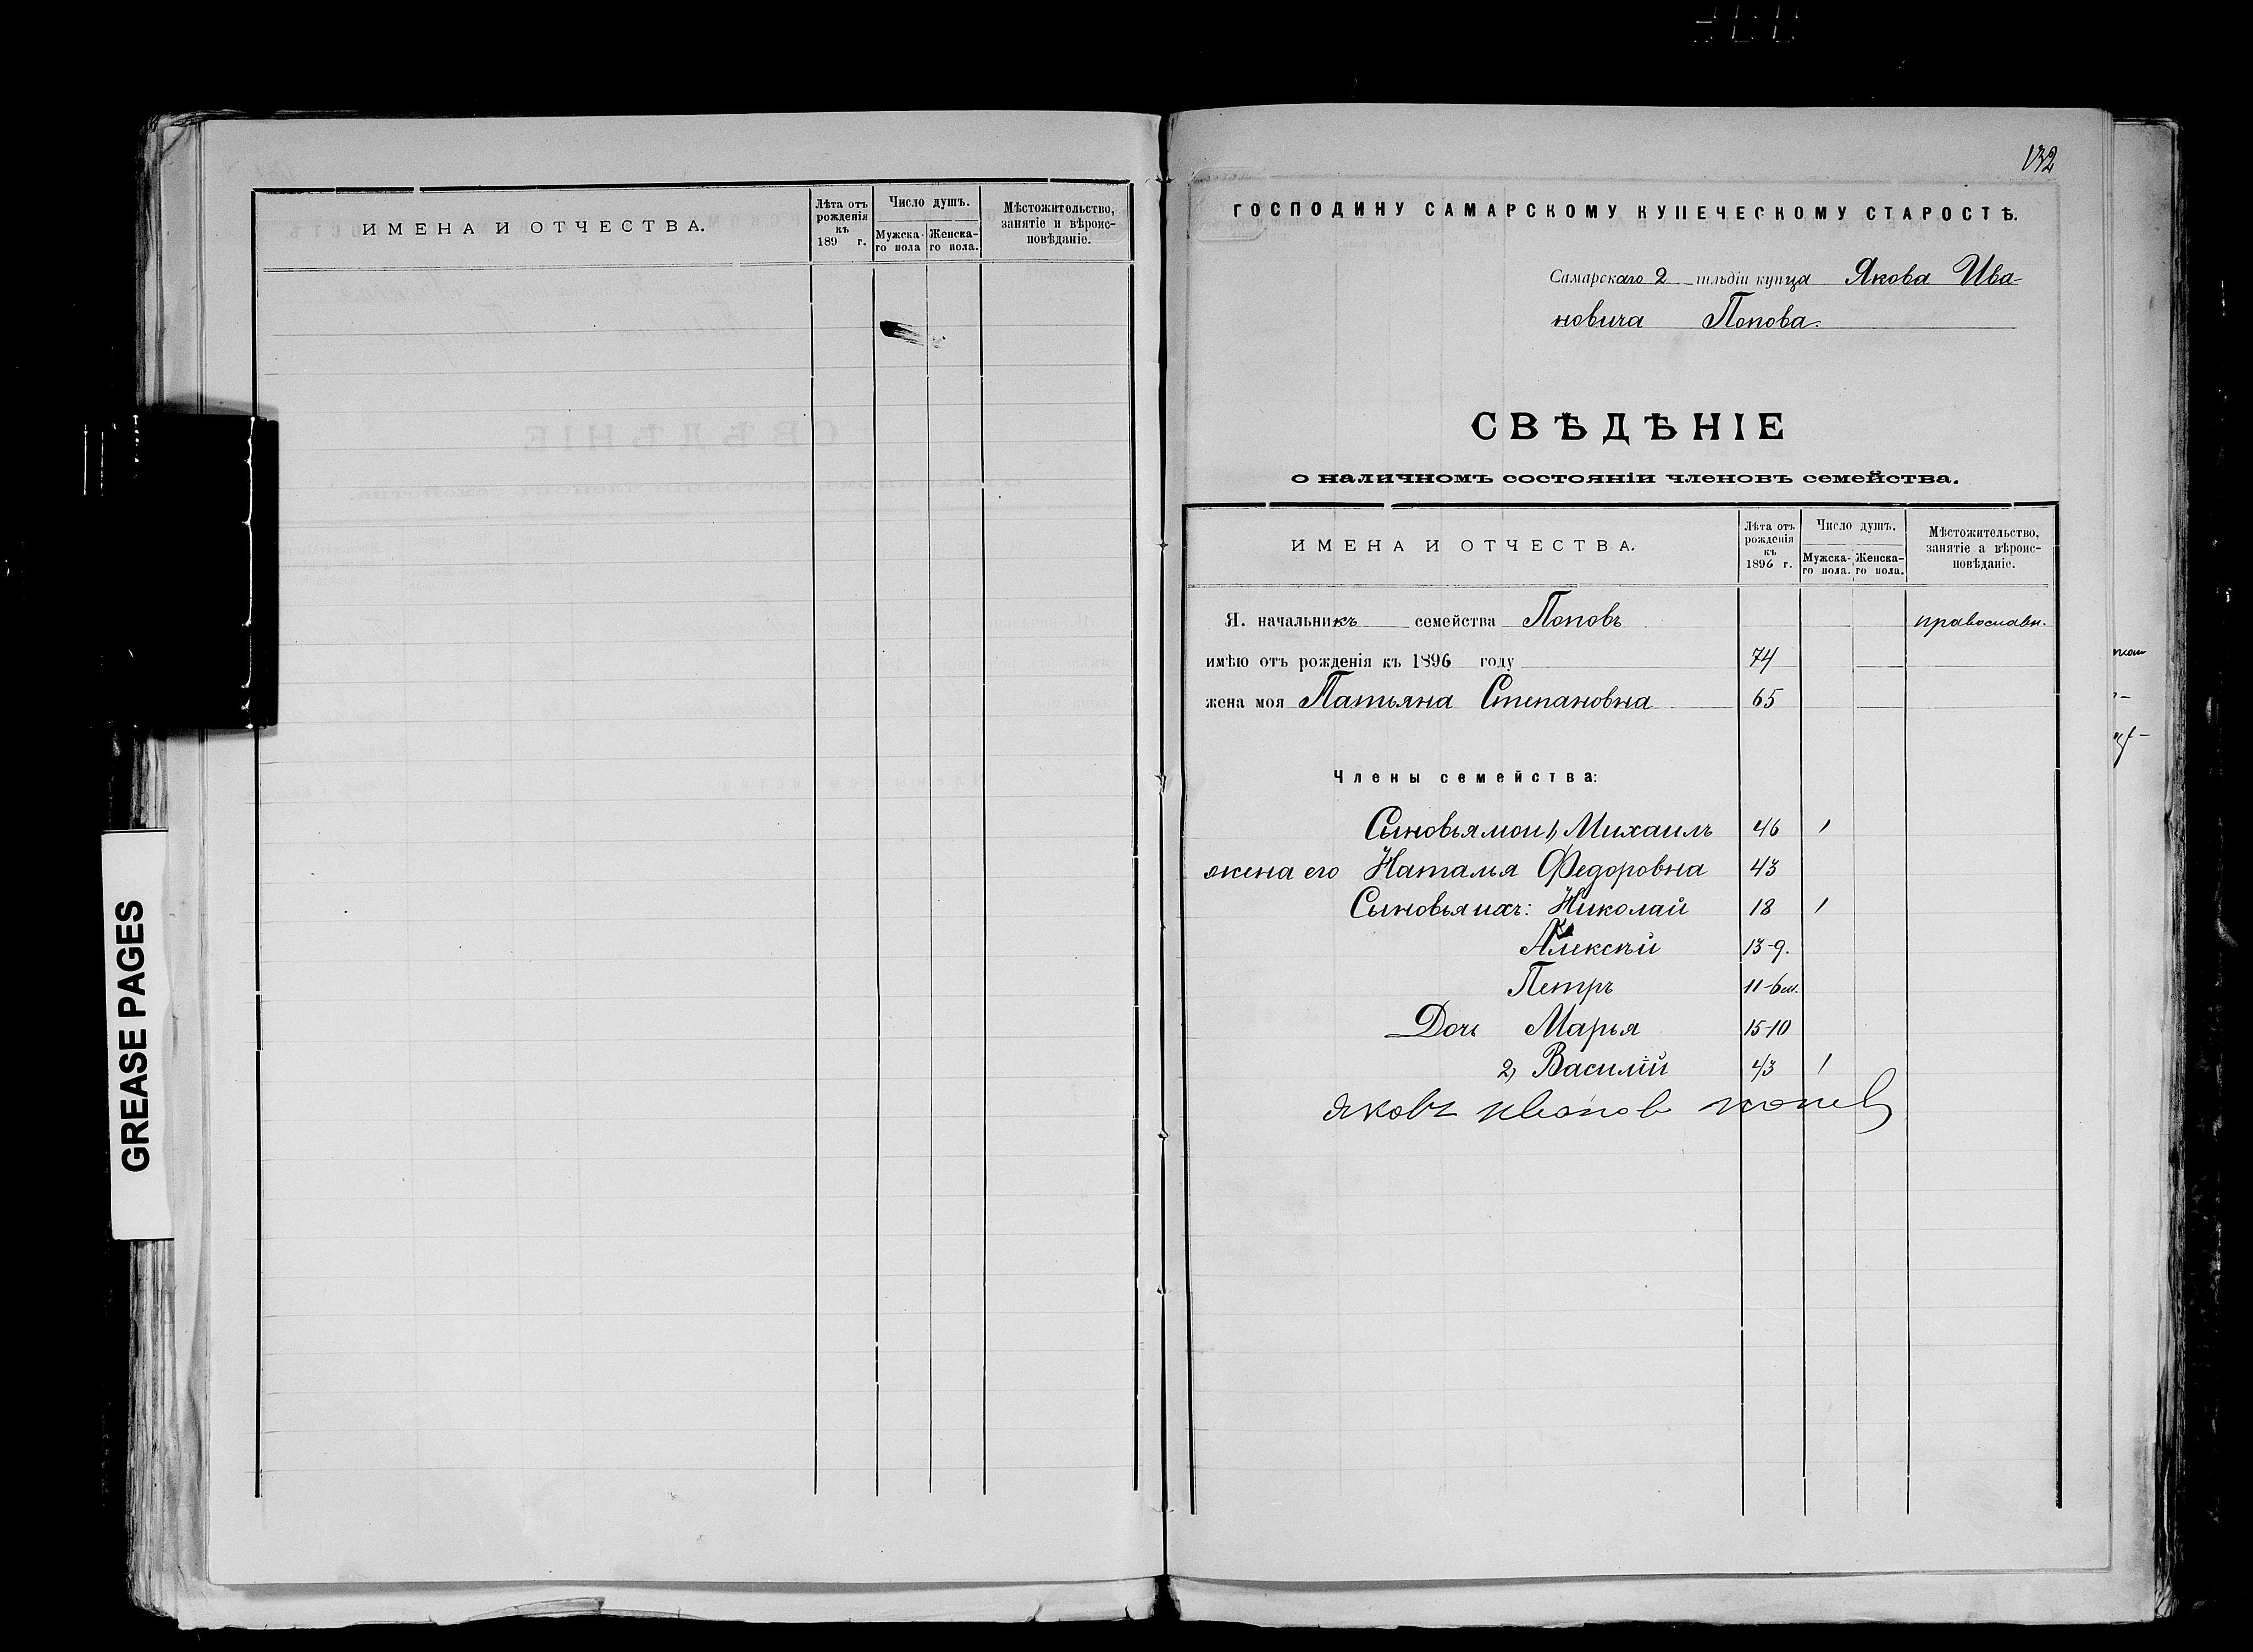 ИМЕНА И ОТЧЕСТВА.
Лѣта отъ рожденія къ 189 г.
Число душъ.
Мужска-го пола
Женска-го пола.
Мѣстожительство, занятіе и вѣроис-повѣданіе.
GREASE PAGES
132
ГОСПОДИНУ САМАРСКОМУ КУПЕЧЕСКОМУ СТАРОСТѢ.
Самарскаго 2 гильдіи купца Якова Ива-
новича Попова.
СВѢДѢНІЕ
о наличномъ состояніи членовъ семейства.
ИМЕНА И ОТЧЕСТВА.
Лѣта отъ рожденія къ 1896 г.
Число душъ.
Мужска-го пола.
Женска-го пола.
Мѣстожительство, занятіе а вѣроис-повѣданіе.
Я. начальникъ семейства Поповъ православн.
имѣю отъ рожденія къ 1896 году 74
жена моя Татьяна Степановна 65
Члены семейства:
Сыновья мои 1, Михаилъ 46 1
жена его Наталья Федоровна 43
Сыновья ихъ: Николай 18 1
Алексѣй 13-9.
Петръ 11-6 м.
Дочь Марья 15-10
2, Василій 43 1
Яковъ Иванов Попов